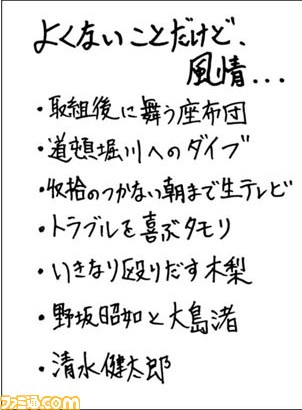 よくないことだけど、
風情...
・取組後に舞う座布団
・道頓堀川へのダイブ
・収拾のつかない朝まで生テレビ
・トラブルを喜ぶタモリ
・いきなり殴りだす木梨
・野坂昭如と大島渚
・清水健太郎
ファミ通.com